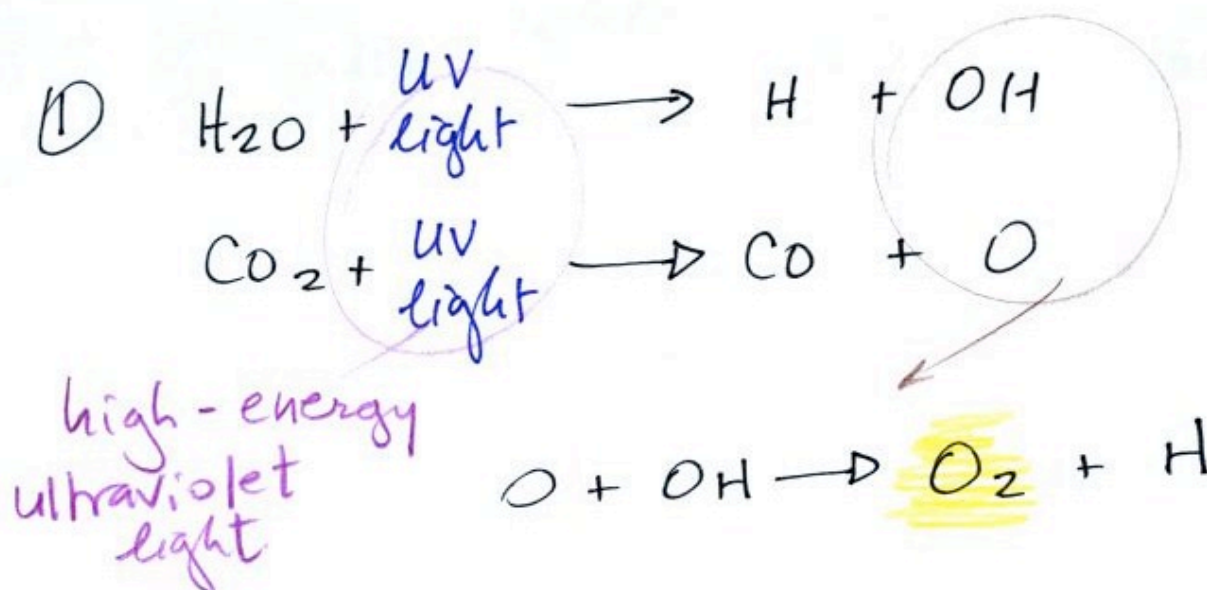 ① H₂O + UV light → H + OH
CO₂ + UV light → CO + O
high-energy
ultraviolet
light
O + OH → O₂ + H